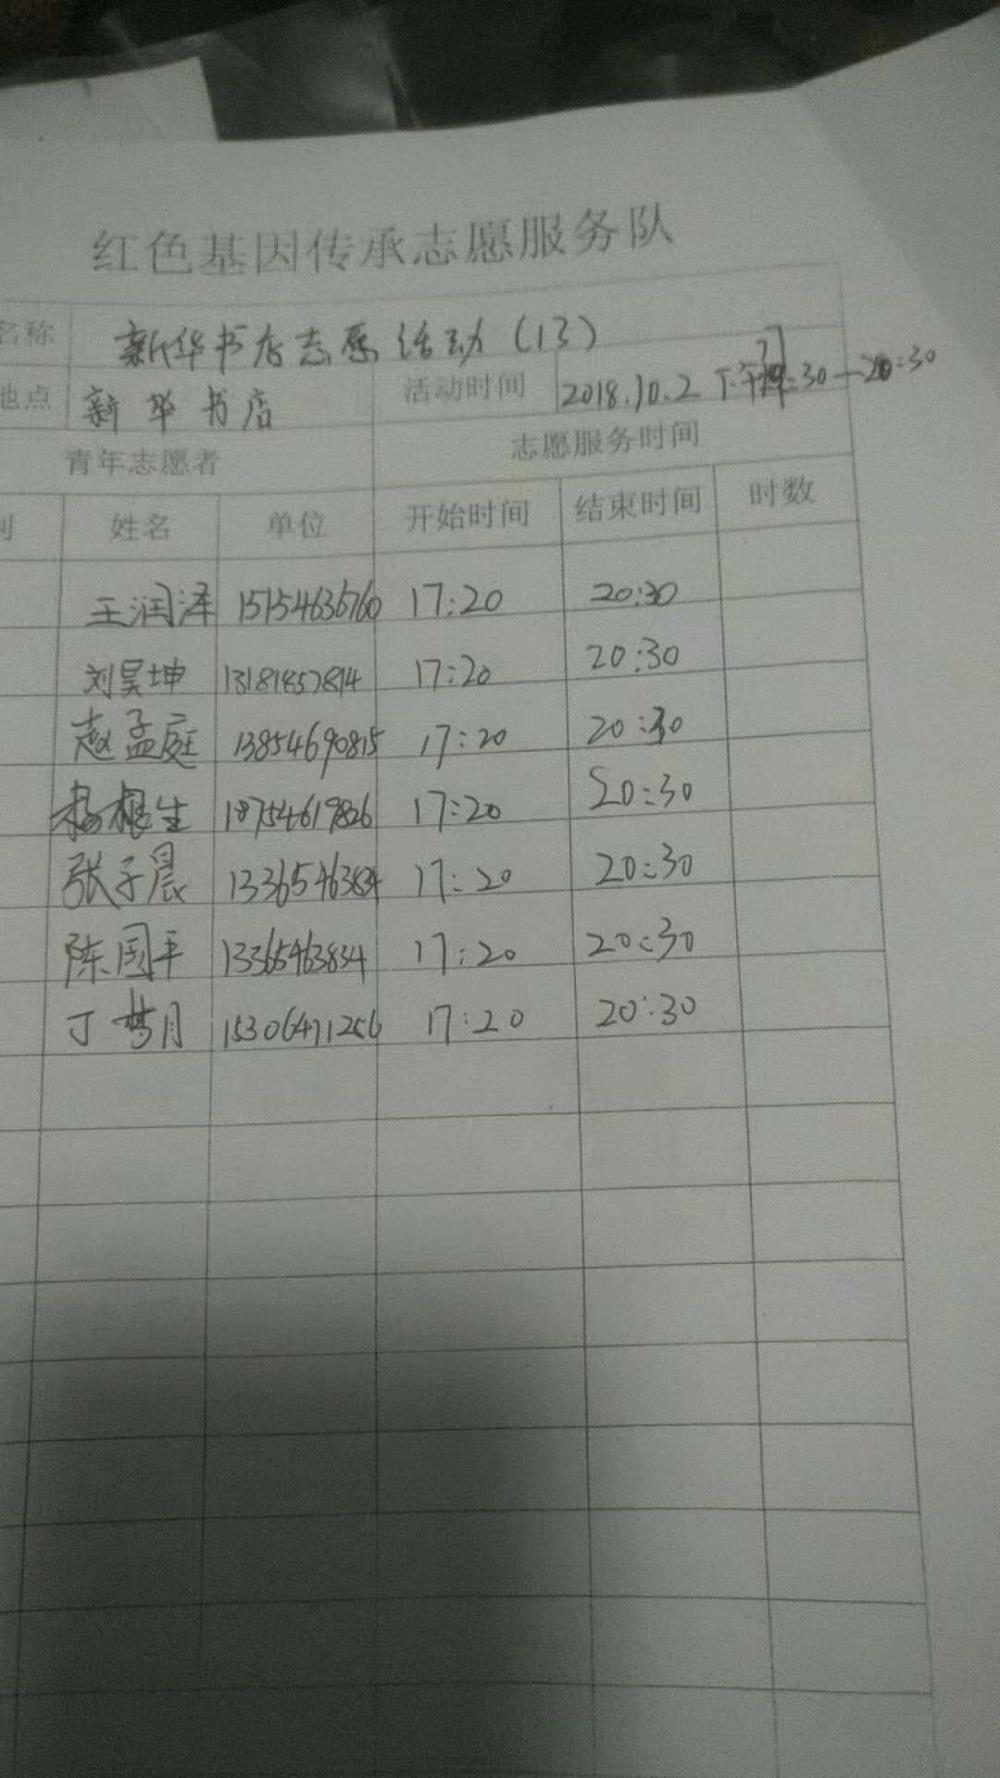 红色基因传承志愿服务队
名称 新华书店志愿活动(13)
地点 新华书店 活动时间 2018.10.2 下午 :30—20:30
青年志愿者 志愿服务时间
别 姓名 单位 开始时间 结束时间 时数
王润泽 15154636760 17:20 20:30
刘昊坤 13181857814 17:20 20:30
赵孟庭 13854690815 17:20 20:30
杨根生 18754619826 17:20 20:30
张子晨 13365463834 17:20 20:30
陈国平 13365463834 17:20 20:30
丁梦月 15306471256 17:20 20:30